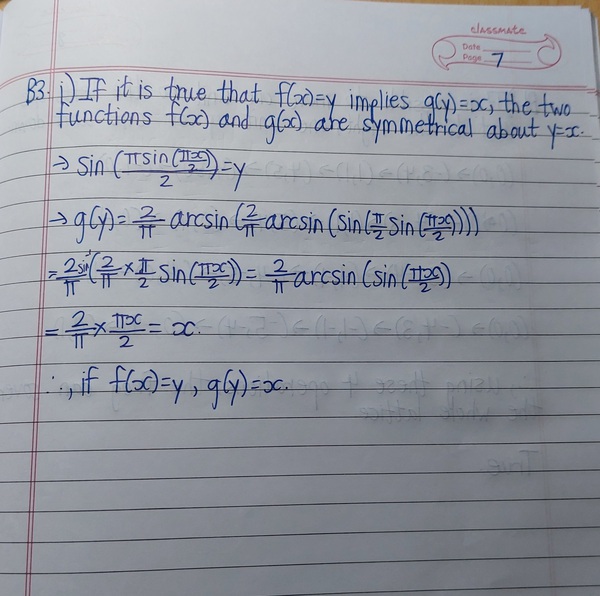 classmate
Date
Page 7
B3. i) If it is true that f(x)=y implies g(y)=x, the two
functions f(x) and g(x) are symmetrical about y=x.
→ sin(πsin(πx/2)/2)=y
→ g(y)= 2/π arcsin(2/π arcsin(sin(π/2 sin(πx/2))))
= 2/π sin⁻¹(2/π × π/2 sin(πx/2)) = 2/π arcsin(sin(πx/2))
= 2/π × πx/2 = x.
∴, if f(x)=y, g(y)=x.